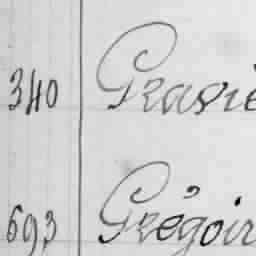 340 Gravie
693 Grégoir